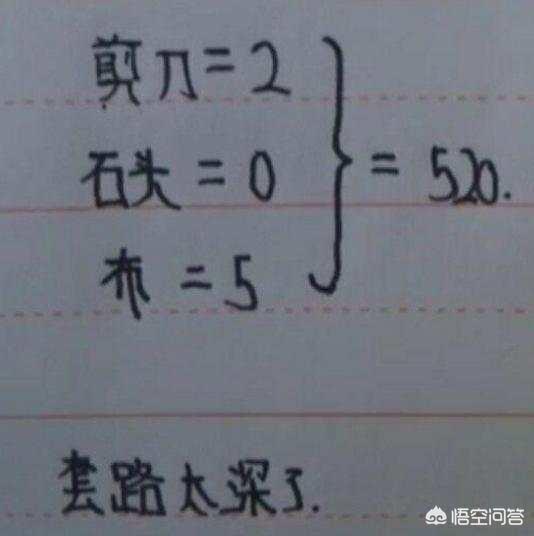 剪刀=2
石头=0
布=5
} = 520.
套路太深了.
悟空问答